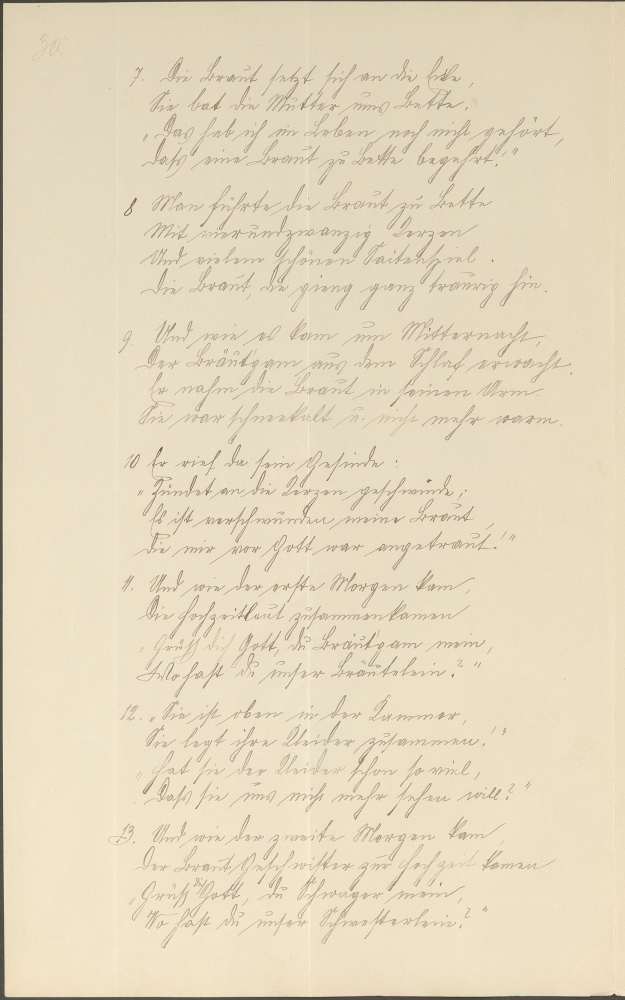 30
7. Die Braut setzt sich an die Ecke,
Sie bat die Mutter ums Bette.
„Das hab ich im Leben noch nicht gehört,
Dass eine Braut zu Bette begehrt!"
8 Man führte die Braut zu Bette
Mit vierundzwanzig Kerzen
Und vielem schönen Saitenspiel.
Die Braut, die gieng ganz traurig hin.
9. Und wie es kam um Mitternacht,
Der Bräut'gam aus dem Schlaf erwacht.
Er nahm die Braut in seinen Arm
Sie war schneekalt u. nicht mehr warm.
10 Er rief da sein Gesinde:
„Zündet an die Kerzen geschwinde;
Es ist verschwunden meine Braut,
Die mir vor Gott war angetraut!"
11. Und wie der erste Morgen kam,
Die Hochzeitleut zusammenkamen
„Grüss dich Gott, du Bräut'gam mein,
Wo hast du unser Bräutelein?"
12. „Sie ist oben in der Kammer,
Sie legt ihre Kleider zusammen."
„Hat sie der Kleider schon so viel,
Dass sie uns nicht mehr sehen will?"
13. Und wie der zweite Morgen kam,
Der Braut Geschwister zur Hochzeit kamen
„Grüss di Gott, du Schwager mein,
Wo hast du unser Schwesterlein?"